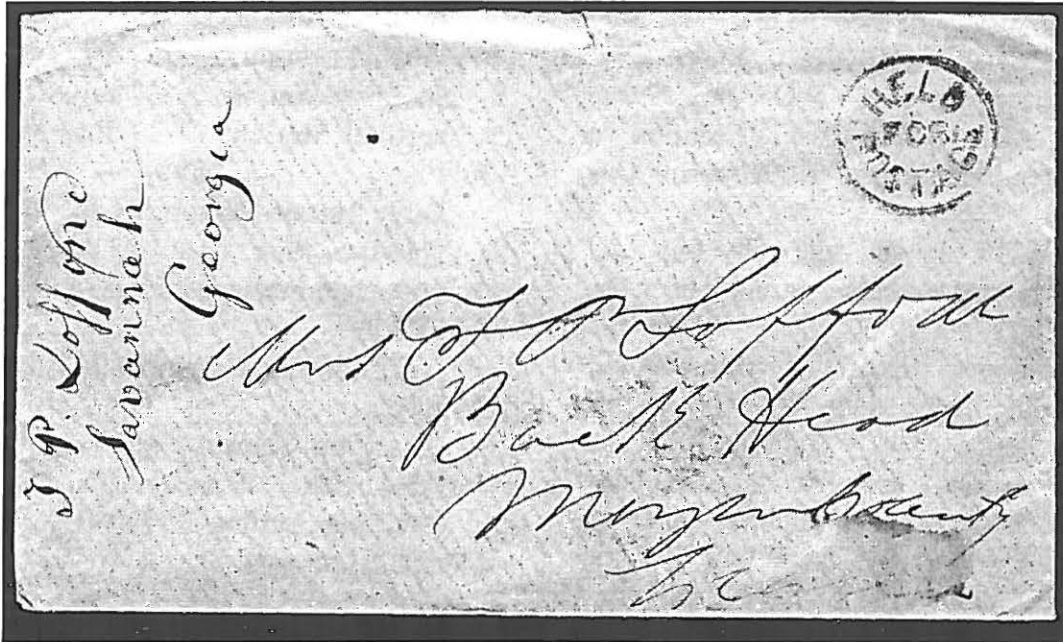 T P. Lofford
Savannah
Georgia
HELD
FOR
POSTAGE
Mrs T P Lofford
Buck Head
Morgan County